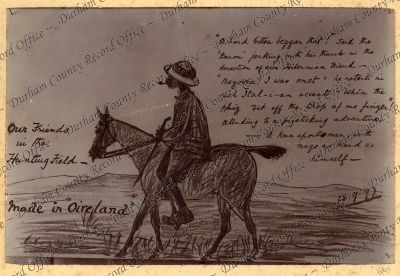 "A hard bitten beggar that"! Said the
Baron jerking with his thumb in the
direction of our Hibernian friend —
"Begorra! I was onst" he retorts in
rich Ital-i-an accents — "Whin the
pig bit off the top of me finger"
alluding to a pigsticking adventure,
— A keen sportsman, with
nags as hard as
himself —
Our Friends
in the
Hunting Field —
Made in "Oireland"
Durham County Record Office